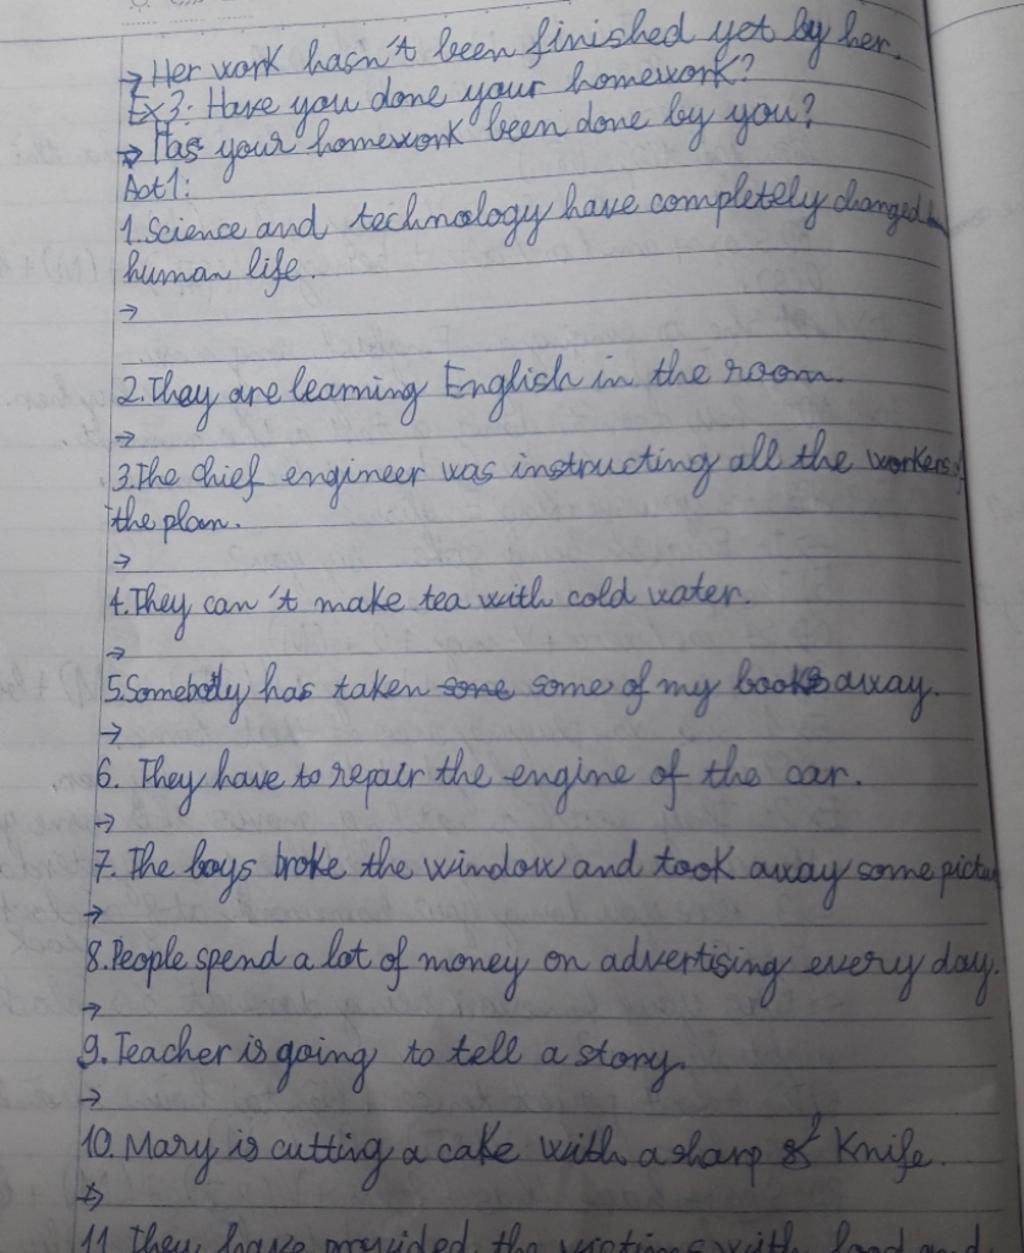 → Her work hasn't been finished yet by her.
Ex3: Have you done your homework?
→ Has your homework been done by you?
Act1:
1.Science and technology have completely changed
human life.
→
2.They are learning English in the room.
→
3.The chief engineer was instructing all the workers of
the plan.
→
4.They can't make tea with cold water.
→
5.Somebody has taken some some of my books away.
→
6. They have to repair the engine of the car.
→
7. The boys broke the window and took away some pictu
→
8.People spend a lot of money on advertising every day.
→
9.Teacher is going to tell a story.
→
10. Mary is cutting a cake with a sharp knife.
→
11. They have provided the victims with food and